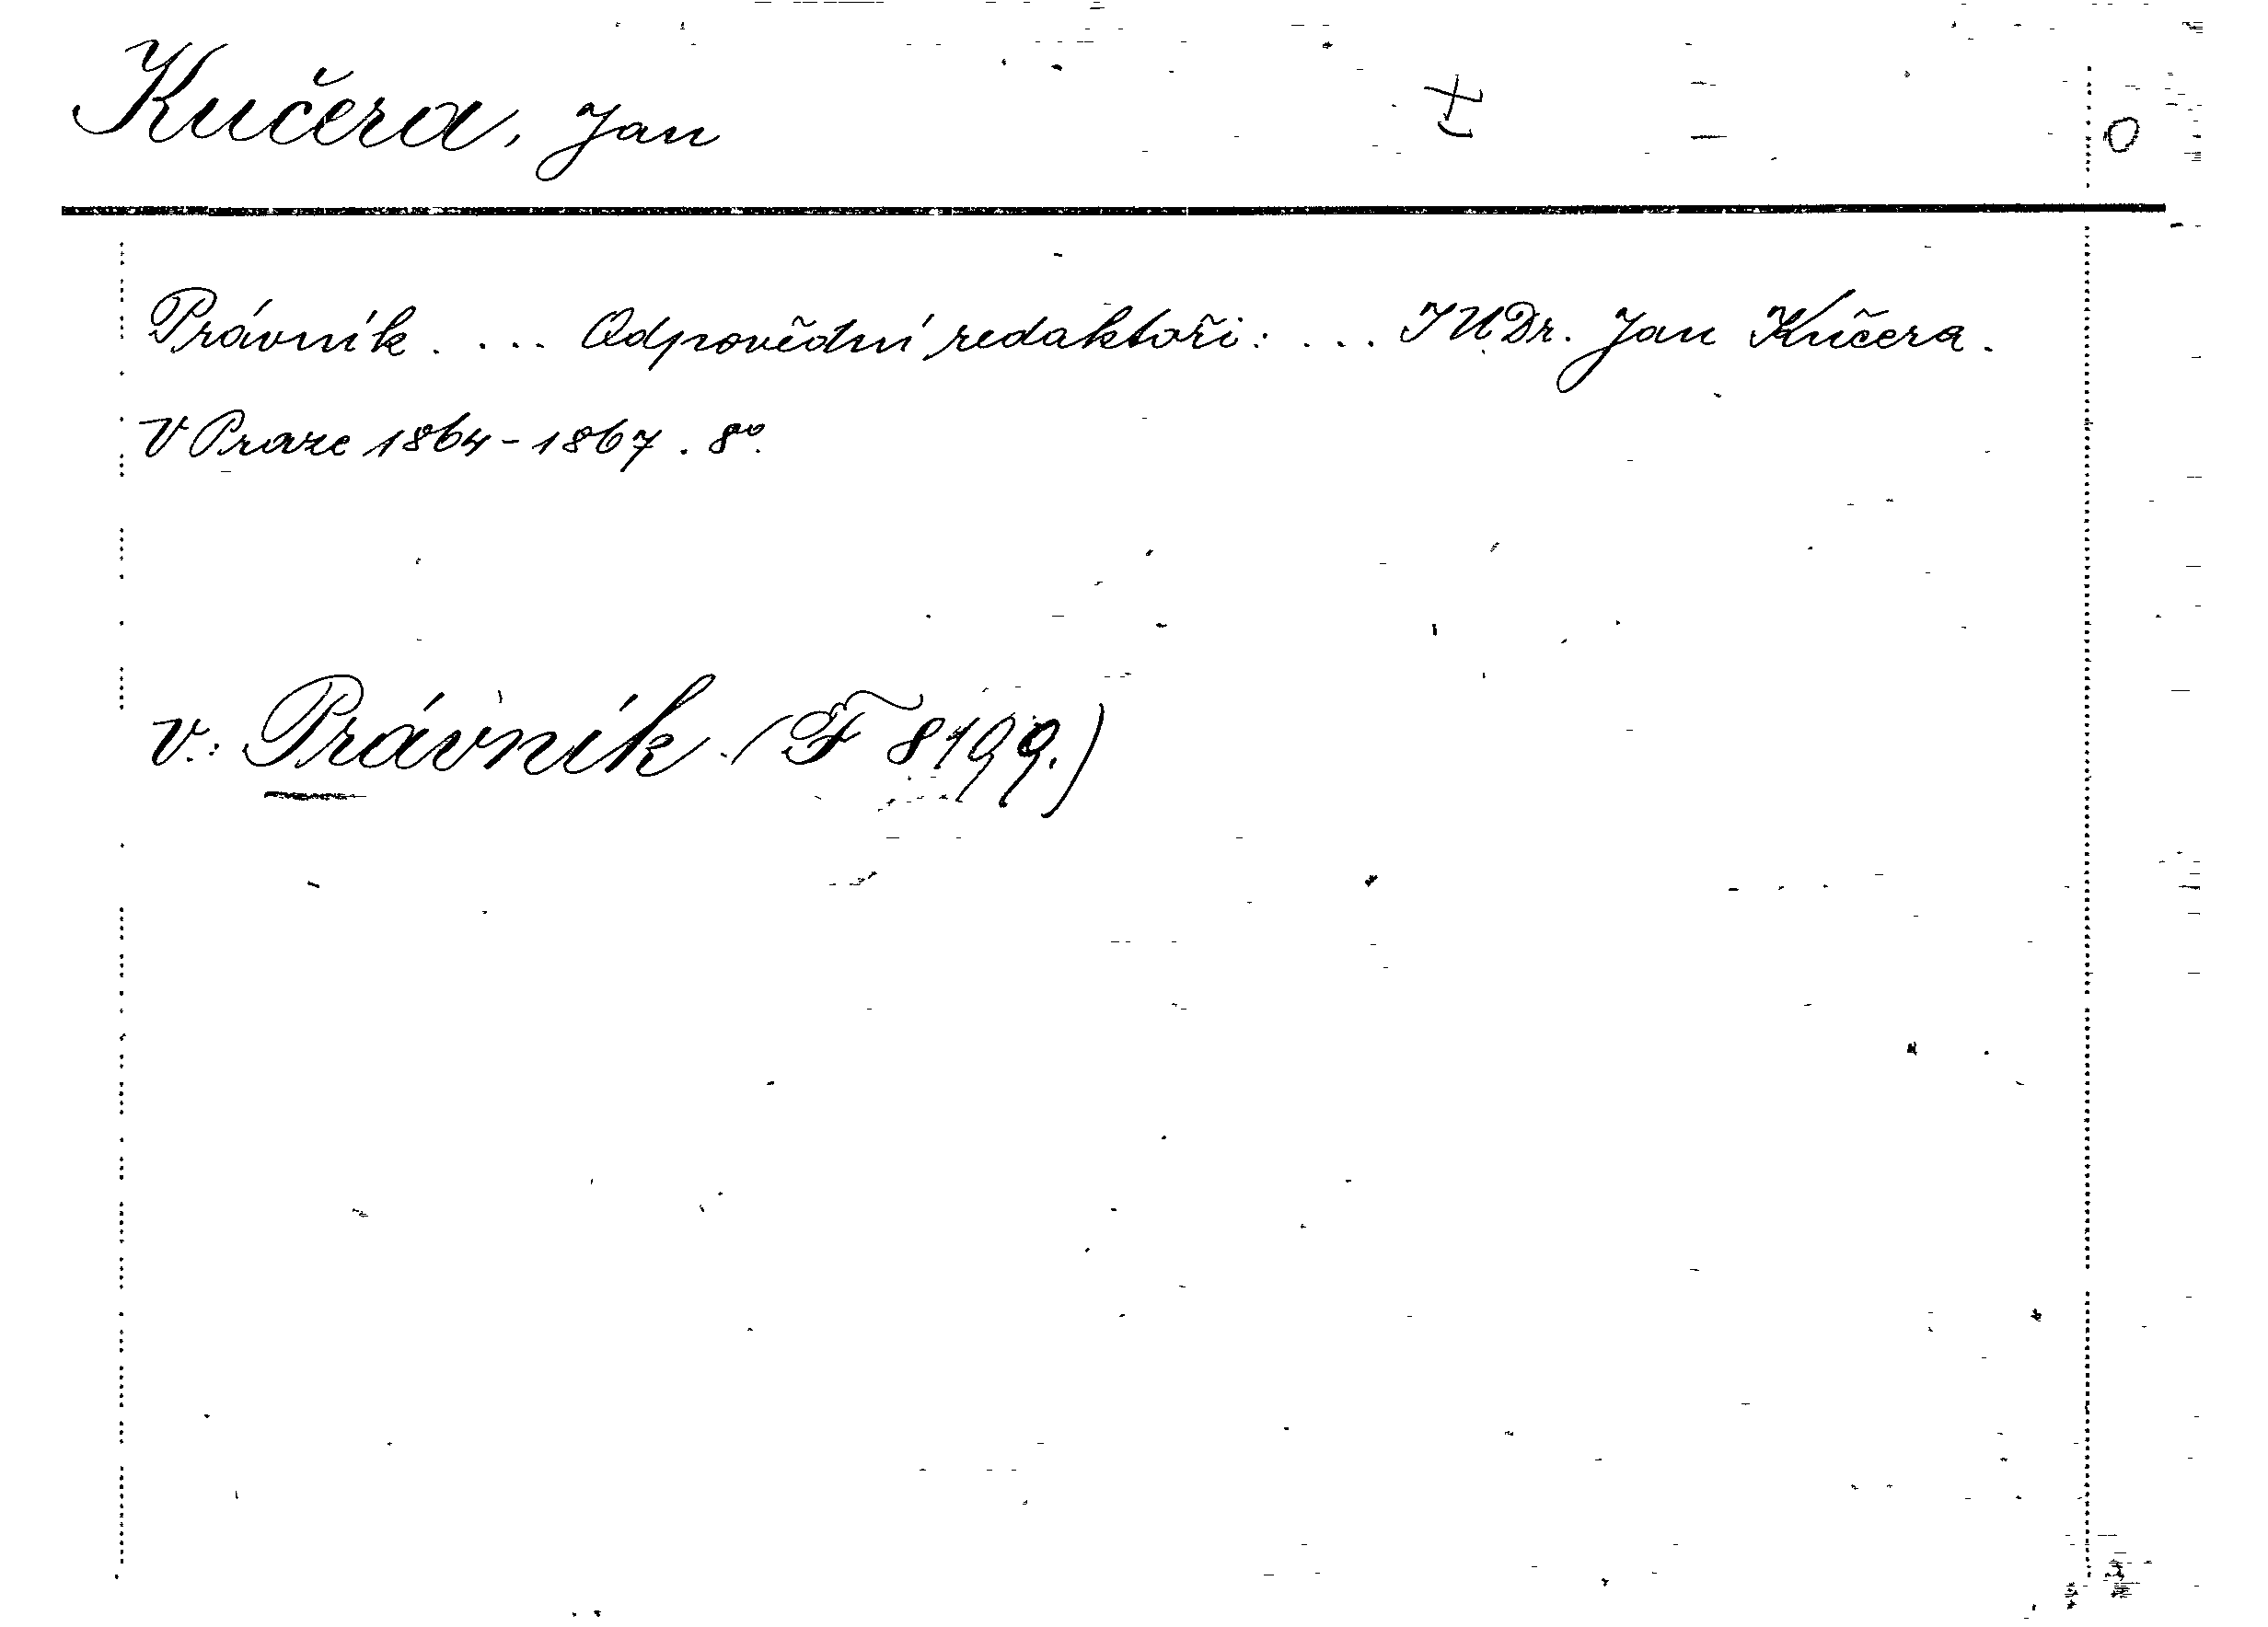 Kučera, Jan
0
Právník. ... Odpovědní redaktoři: ... JUDr. Jan Kučera.
V Praze 1864-1867. 8º.
v.: Právník. (F 8199.)